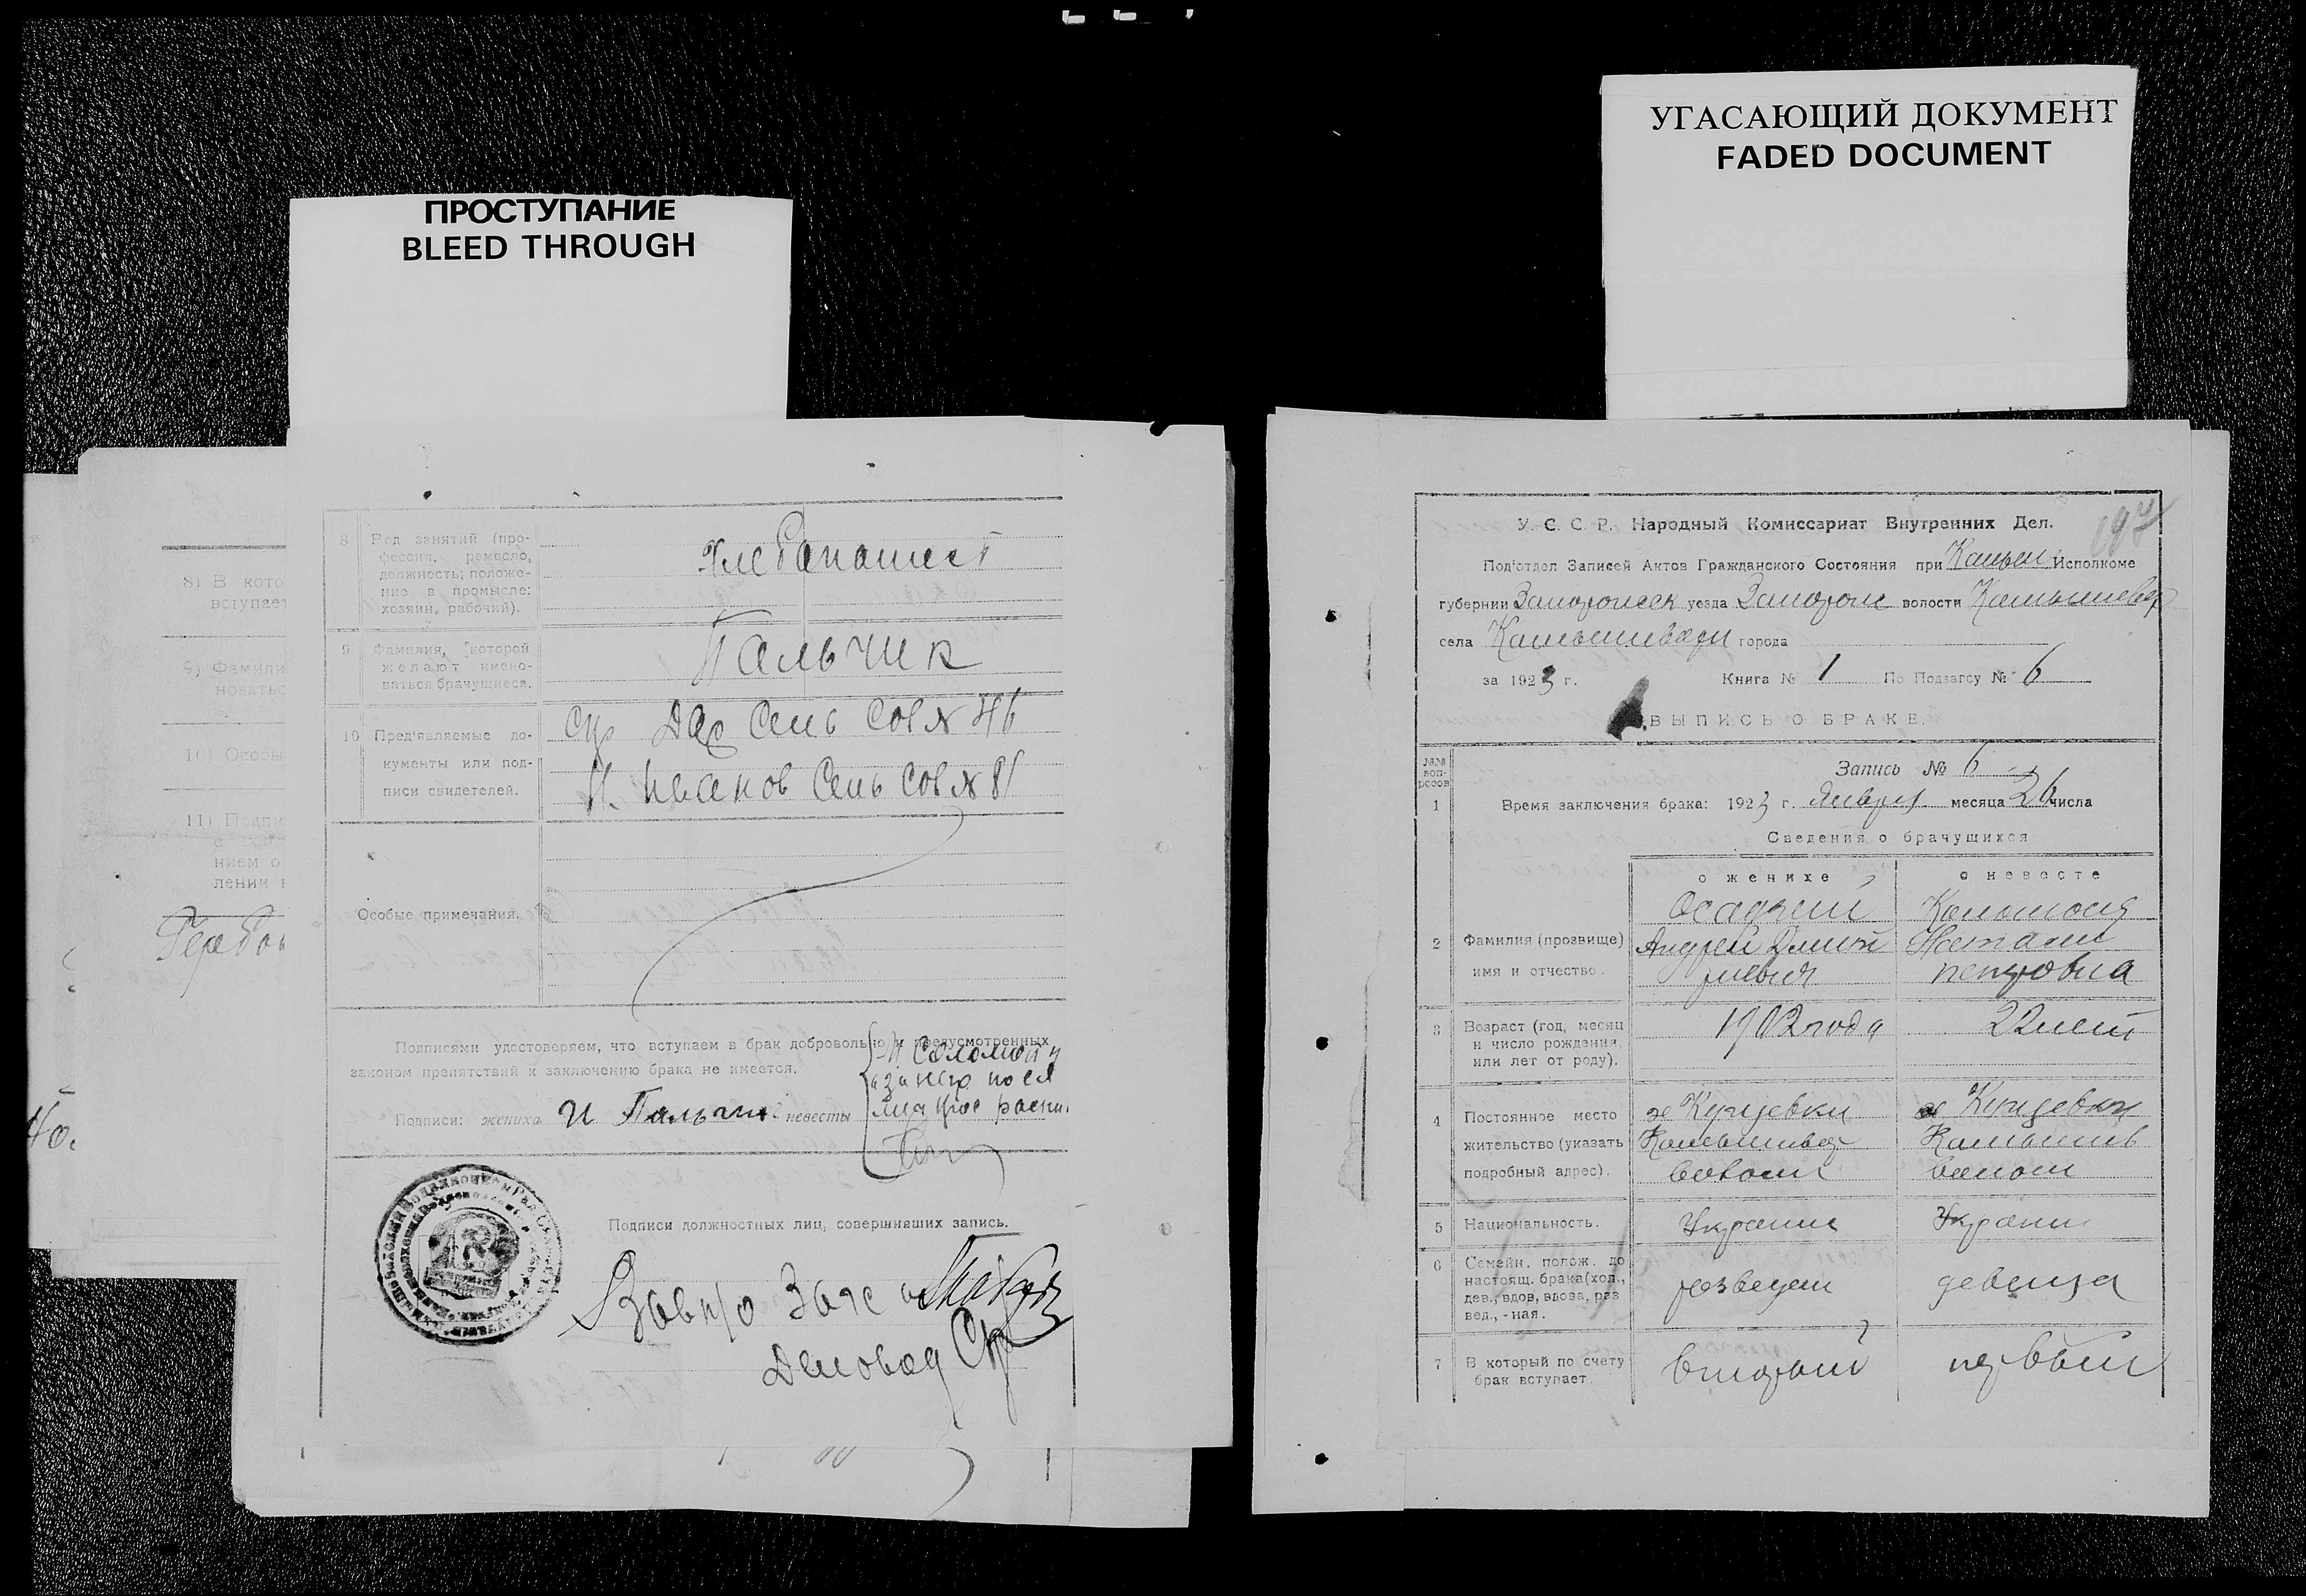 ПРОСТУПАНИЕ
BLEED THROUGH
8 Род занятий (про-
фессия, ремесло,
должность; положе-
ние в промысле:
хозяин, рабочий).
Хлебопашест
9 Фамилия, которой
желают имено-
ваться брачущиеся.
Пальчик
10 Пред'являемые до-
кументы или под-
писи свидетелей.
Сель Сов № 46
Иванов Сель Сов № 81
Особые примечания.
Подписями удостоверяем, что вступаем в брак добровольно и предусмотренных
законом препятствий к заключению брака не имеется.
Подписи: жениха И Пальчик невесты
Подписи должностных лиц, совершивших запись.
Завп/о Загс
Деловод
8) В кото
вступает
9) Фамили
новатьс
10) Особы
11) Подпи
нием о
лении
УГАСАЮЩИЙ ДОКУМЕНТ
FADED DOCUMENT
197
У. С. С. Р. Народный Комиссариат Внутренних Дел.
Под'отдел Записей Актов Гражданского Состояния при Камыш Исполкоме
губернии Запорожск уезда Запорож волости Камышевах
села Камышевахи города
за 1923 г. Книга № 1 По Подзагсу № 6
ВЫПИСЬ О БРАКЕ.
№№ воп-росов
Запись № 6
1 Время заключения брака: 1923 г. Января месяца 26 числа
Сведения о брачущихся
о женихе о невесте
2 Фамилия (прозвище)
имя и отчество.
Осадчий
Андрей Дмит
риевич
Наталия
петровна
3 Возраст (год, месяц
и число рождения,
или лет от роду).
1902 года
22 лет
4 Постоянное место
жительство (указать
подробный адрес).
Камышевах
волост
Камышев
волост
5 Национальность.
Украине
Украин
6 Семейн. полож. до
настоящ. брака (хол.,
дев., вдов, вдова, раз
вед., -ная.
розведен
девица
7 В который по счету
брак вступает.
вторый
первый